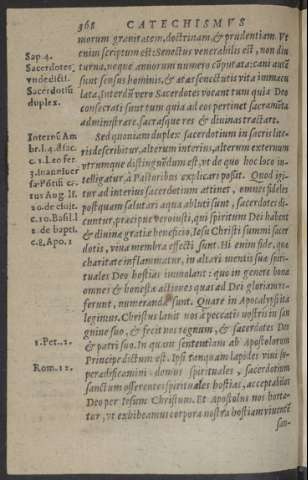 368 CATECHISMVS
morum grauitatem, doctrinam, & prudentiam. Vt
enim scriptum est: Senectus venerabilis est, non diu
turna, neque annorum numero cōputata: cani autē
sunt sensus hominis, & ætas senectutis vita immacu
lata, Interdū vero Sacerdotes vocant tum quia Deo
consecrati sunt tum quia ad eos pertinet sacramēta
administrare, sacrasque res & diuinas tractare.
Sed quoniam duplex sacerdotium in sacris lite-
ris describitur, alterum interius, alterum externum
vtrumque distinguēdum est, vt de quo hoc loco in-
telligatur à Pastoribus explicari possit. Quod igi-
tur ad interius sacerdotium attinet, omnes fideles
postquam salutari aqua abluti sunt, sacerdotes di-
cuntur, præcipue vero iusti, qui spiritum Dei habent
& diuinæ gratiæ beneficio, Iesu Christi summi sacer
dotis, viua membra effecti sunt. Hi enim fide, quæ
charitate inflammatur, in altari mentis suæ spiri-
tuales Deo hostias immolant: quo in genere bonæ
omnes & honestæ actiones quas ad Dei gloriam re-
ferunt, numerandæ sunt. Quare in Apocalypsi ita
legimus. Christus lauit nos à peccatis nostris in san
guine suo, & fecit nos regnum, & sacerdotes Deo
& patri suo. In quam sententiam ab Apostolorum
Principe dictum est. Ipsi tanquam lapides viui su-
peraedificamini domus spirituales, sacerdotium
sanctum offerentes spirituales hostias, acceptabiles
Deo per Iesum Christum. Et Apostolus nos horta-
tur, vt exhibeamus corpora nostra hostiam viuentē
san-
Sap. 4.
Sacerdotes
vnde dicti.
Sacerdotiū
duplex.
Internū Am
br. l. 4. de sac.
c. 1. Leo ser.
Aug. li.
20. de ciuit.
c. 10. Basil. l
2. de bapti.
c. 8. Apo. 1
1. Pet. 2.
Rom. 12.